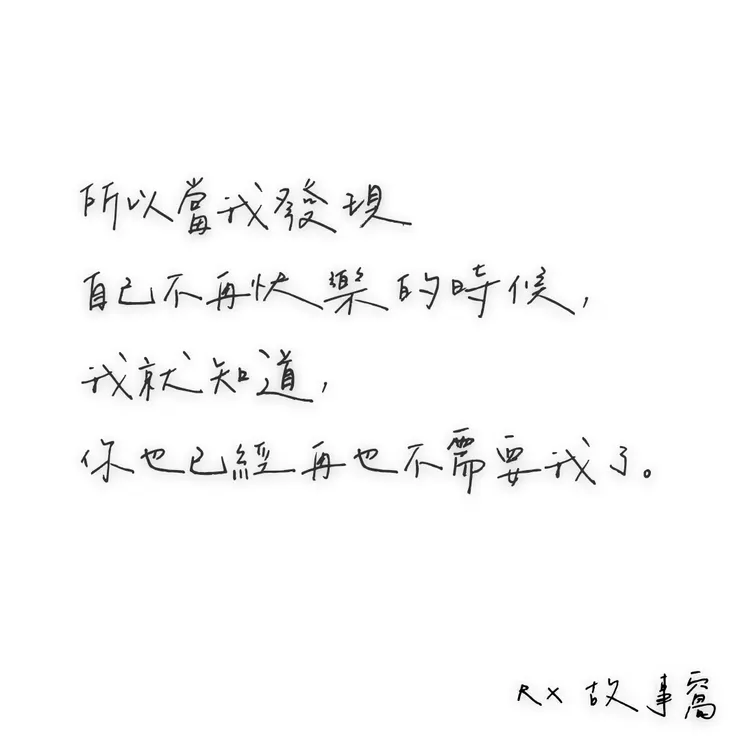 所以當我發現
自己不再快樂的時候,
我就知道,
你也已經再也不需要我了。
RX 故事窩